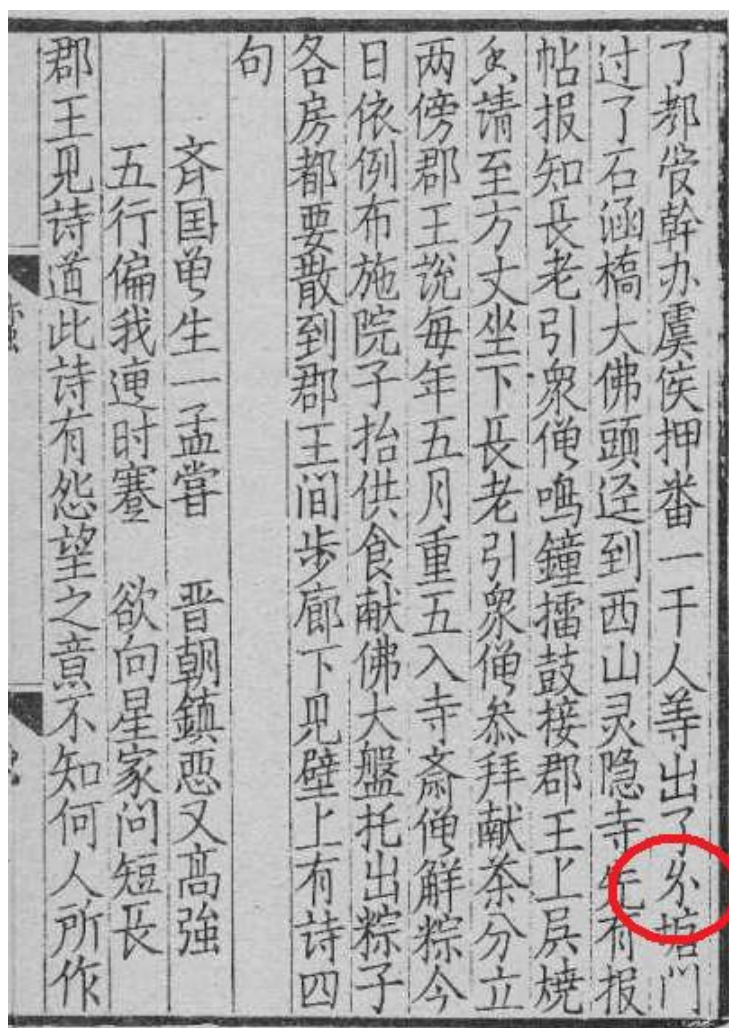 了都管幹办虞侯押畨一干人等出了塘门
过了石涵橋大佛頭迳到西山灵隐寺先有报
帖报知長老引衆僧鳴鐘擂鼓接郡王上殿燒
香請至方丈坐下長老引衆僧叅拜献茶分立
两傍郡王說每年五月重五入寺斎僧觧粽今
日依例布施院子抬供食献佛大盤托出粽子
各房都要散到郡王间步廊下見壁上有詩四
句
斉国曽生一孟甞　晋朝鎮悪又高強
五行偏我遭时蹇　欲向星家问短長
郡王見詩道此詩有怨望之意不知何人所作